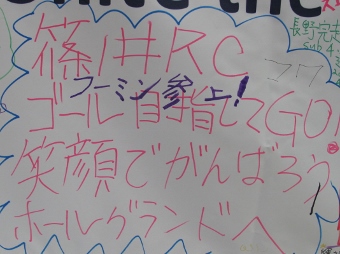 篠井RC
フーミン参上!
ゴール目指してGO!
笑顔でがんばろう
ホールグランドへ
長野完走
sub4